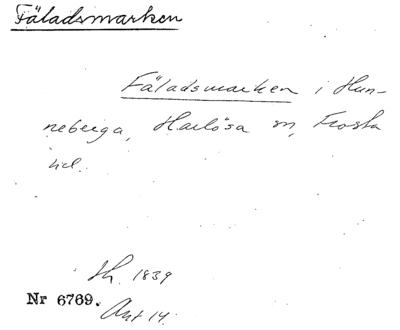 Fäladsmarken
Fäladsmarken i Hun-
neberga, Harlösa sn, Frosta
hd.
Sk. 1839
Nr 6769.
Akt 14.